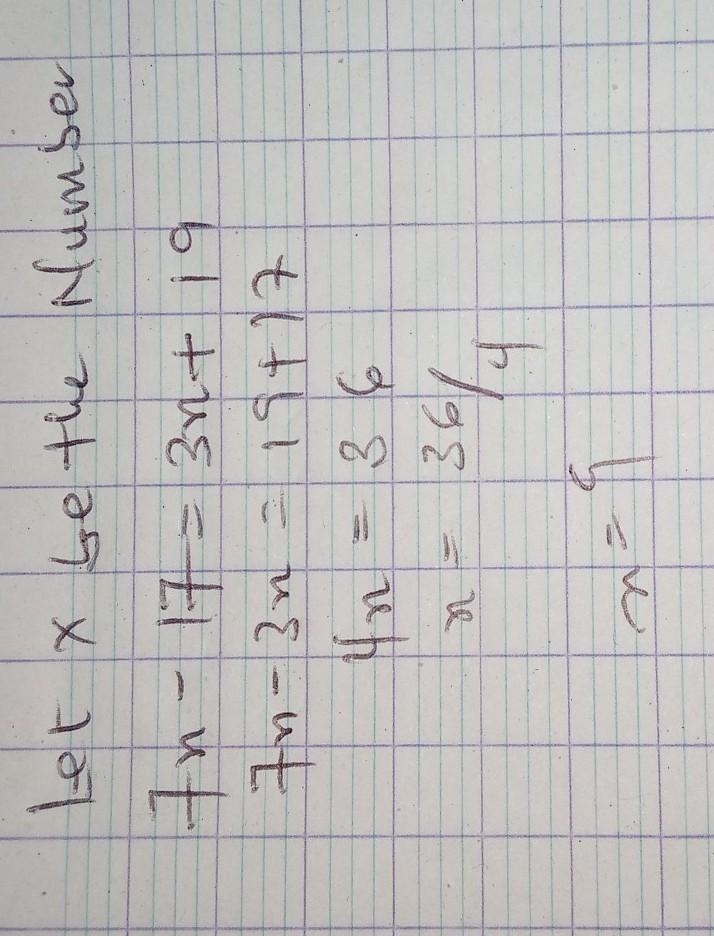 Let x be the Number
7x - 17 = 3x + 19
7x - 3x = 19 + 17
4x = 36
x = 36/4
x = 9